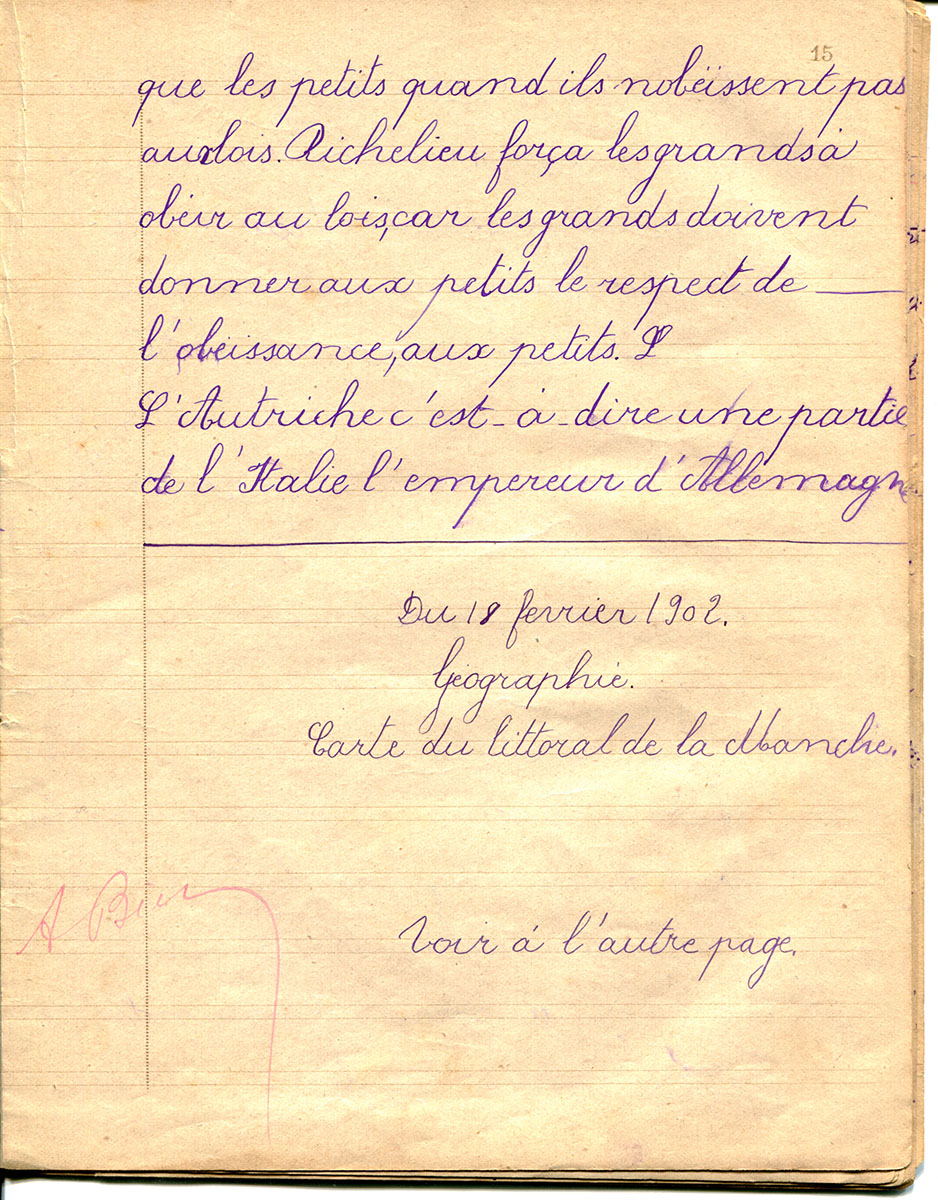 15
que les petits quand ils nobéissent pas
aux lois. Richelieu força les grands à
obéir au lois, car les grands doivent
donner aux petits le respect de
l'obéissance, aux petits. L
L'Autriche c'est-à-dire une partie
de l'Italie l'empereur d'Allemagne
Du 18 fevrier 1902.
Géographie.
Carte du littoral de la Manche.
A Bien
Voir à l'autre page.